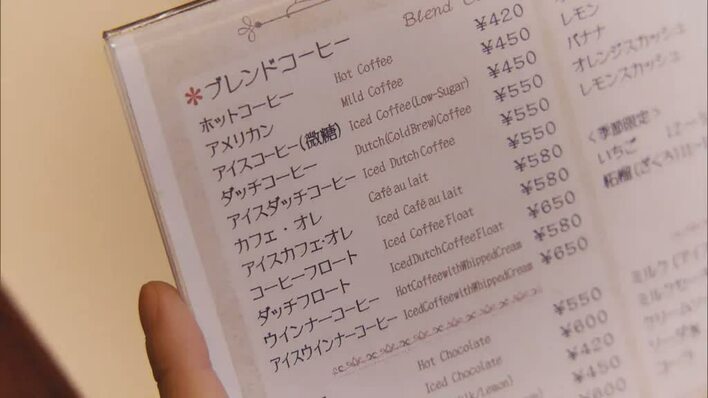 Blend
*ブレンドコーヒー
ホットコーヒー Hot Coffee ¥420
アメリカン Mild Coffee ¥450
アイスコーヒー(微糖) Iced Coffee(Low-Sugar) ¥450
ダッチコーヒー Dutch(ColdBrew)Coffee ¥550
アイスダッチコーヒー Iced Dutch Coffee ¥550
カフェ・オレ Café au lait ¥580
アイスカフェ・オレ Iced Café au lait ¥580
コーヒーフロート Iced Coffee Float ¥650
ダッチフロート Iced Dutch Coffee Float
ウインナーコーヒー HotCoffeewithWhippedCream ¥580
アイスウインナーコーヒー IcedCoffeewithWhippedCream ¥650
¥550
Hot Chocolate ¥600
Iced Chocolate ¥420
¥450
¥600
レモン
バナナ
オレンジスカッシュ
レモンスカッシュ
<季節限定>
いちご
柘榴(ざくろ)
ミルク(アイ
ミルクセーキ
クリームソー
ソーダ水
コーラ